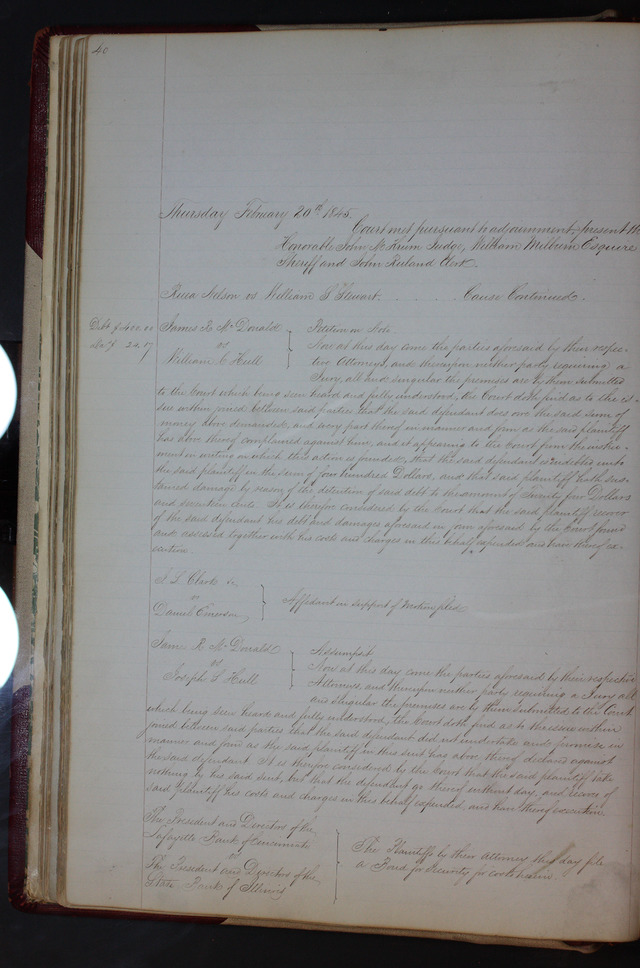 40
Thursday February 20th 1845.
Court met pursuant to adjournment, present the
Honorable John M. Krum Judge, William Milburn Esquire
Sheriff and John Ruland Clerk.
Nelson vs William S. Stewart. Cause Continued.
Debt $400.00
Da. $ 24.17
James R. McDonald
vs
William C. Hull
Petition on Note
Now at this day came the parties aforesaid by their respec-
tive Attorneys, and thereupon neither party requiring a
Jury, all and singular the premises are by them submitted
to the Court which being seen heard and fully understood, the Court doth find as to the is-
sue within joined between said parties that the said defendant does owe the said sum of
money above demanded, and every part thereof in manner and form as the said plaintiff
has above thereof complained against him, and it appearing to the Court from the instru-
ment in writing on which this action is founded, that the said defendant is indebted unto
the said plaintiff in the sum of four hundred Dollars, and that said plaintiff hath sus-
tained damage by reason of the detention of said debt to the amount of Twenty four Dollars
and seventeen cents. It is therefore considered by the Court that the said plaintiff recover
of the said defendant his debt and damages aforesaid in form aforesaid by the Court found
and assessed together with his costs and charges in this behalf expended and have thereof ex-
ecution.
Clark &c
vs
Daniel Emerson
Affidavit in support of motion filed
James R. McDonald
vs
Joseph S. Hull
Assumpsit
Now at this day come the parties aforesaid by their respective
Attorneys, and thereupon neither party requiring a Jury all
and singular the premises are by them submitted to the Court
which being seen heard and fully understood, the Court doth find as to the issue within
joined between said parties that the said defendant did not undertake and promise in
manner and form as the said plaintiff in this suit has above thereof declared against
the said defendant. It is therefore considered by the Court that the said plaintiff take
nothing by his said suit, but that the defendant go thereof without day, and recover of
said plaintiff his costs and charges in this behalf expended, and have thereof execution.
The President and Directors of the
Lafayette Bank of Cincinnati
vs
The President and Directors of the
State Bank of Illinois
The Plaintiffs by their attorney this day file
a Bond for Security for costs herein.